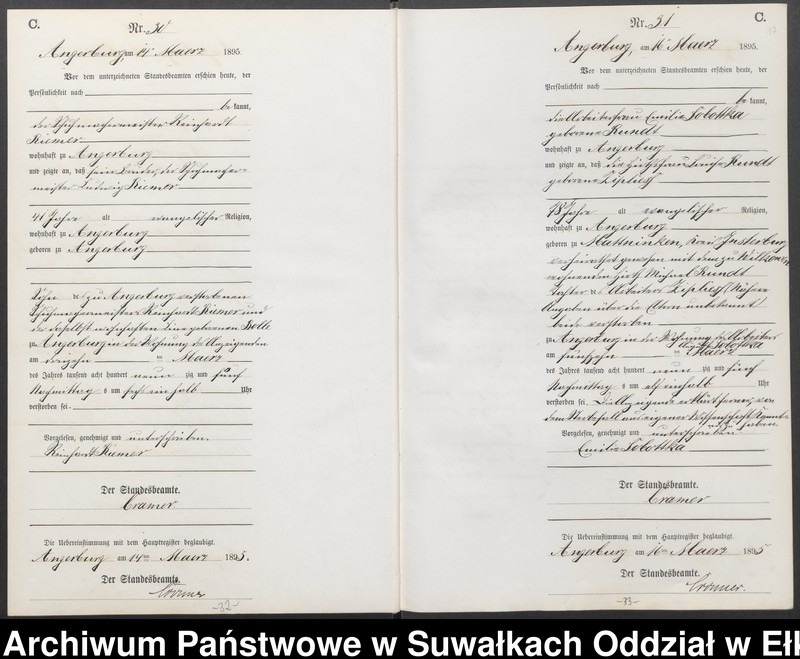 C.
Nr. 30
Angerburg, am 14 Maerz 1895.
Vor dem unterzeichneten Standesbeamten erschien heute, der
Persönlichkeit nach
be kannt,
der Schuhmachermeister Reinhardt
Riemer
wohnhaft zu Angerburg
und zeigte an, daß sein Bruder, der Schuhmacher-
meister Ludwig Riemer
41 Jahre alt evangelischer Religion,
wohnhaft zu Angerburg
geboren zu Angerburg
Sohn des zu Angerburg verstorbenen
Schuhmachermeisters Reinhardt Riemer und
der daselbst wohnhaften Line geborenen Bolle
zu Angerburg in der Wohnung des Anzeigenden
am dreizehn ten Maerz
des Jahres tausend acht hundert neun zig und fünf
Nachmittag s um sechs ein halb Uhr
verstorben sei.
Vorgelesen, genehmigt und unterschrieben.
Reinhardt Riemer
Der Standesbeamte.
Cramer
Die Uebereinstimmung mit dem Hauptregister beglaubigt.
Angerburg am 14ten Maerz 1895.
Der Standesbeamte.
Cramer
-32-
Nr. 31
C.
Angerburg, am 16 Maerz 1895.
Vor dem unterzeichneten Standesbeamten erschien heute, der
Persönlichkeit nach
be kannt,
die Arbeiterfrau Emilie Sobottka
geborene Kundt
wohnhaft zu Angerburg
und zeigte an, daß die Hirtsfrau Louise Kundt
geborene Zipliess
78 Jahre alt evangelischer Religion,
wohnhaft zu Angerburg
geboren zu Mattninken, Kreis Insterburg
verheirathet gewesen mit dem zu
wohnenden Hirth Michael Kundt
Tochter des Arbeiters Zipliess Nähere
Angaben über die Eltern unbekannt
beide verstorben
zu Angerburg in der Wohnung des Arbeiters
Sobottka
am fünfzehn ten Maerz
des Jahres tausend acht hundert neun zig und fünf
Nachmittag s um elf ein halb Uhr
verstorben sei. Die Anzeigende erklärt ferner, von
dem Sterbefall aus eigener Wissenschaft Kenntniß
zu haben.
Vorgelesen, genehmigt und unterschrieben
Emilie Sobottka
Der Standesbeamte.
Cramer
Die Uebereinstimmung mit dem Hauptregister beglaubigt.
Angerburg am 16ten Maerz 1895
Der Standesbeamte.
Cramer.
-33-
Archiwum Państwowe w Suwałkach Oddział w Ełk